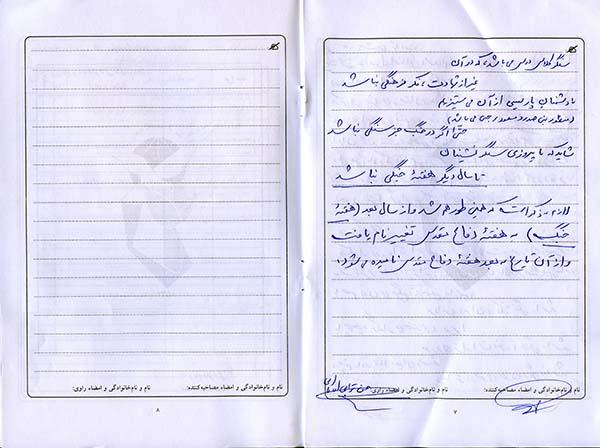 سنگر کلاس درس می باشد، که در آن
غیر از شهادت، مکر فرهنگی نباشد
با دشمنان پارسی از آن می ستیزیم
(منظور بنی صدر و مسعود رجوی می باشد)
حتی اگر در جنگ جز سنگی نباشد
شاید که با پیروزی سنگر نشینان
تا سال دیگر هفتهٔ جنگی نباشد
لازم به ذکر است که همین طور هم شد و از سال بعد (هفتهٔ
جنگ) به هفتهٔ دفاع مقدس تغییر نام یافت
و از آن تاریخ به بعد هفتهٔ دفاع مقدس نامیده می شود.
نام و نام‌خانوادگی و امضاء مصاحبه‌کننده:
نام و نام‌خانوادگی و امضاء راوی:
۷
نام و نام‌خانوادگی و امضاء مصاحبه‌کننده:
نام و نام‌خانوادگی و امضاء راوی:
۸